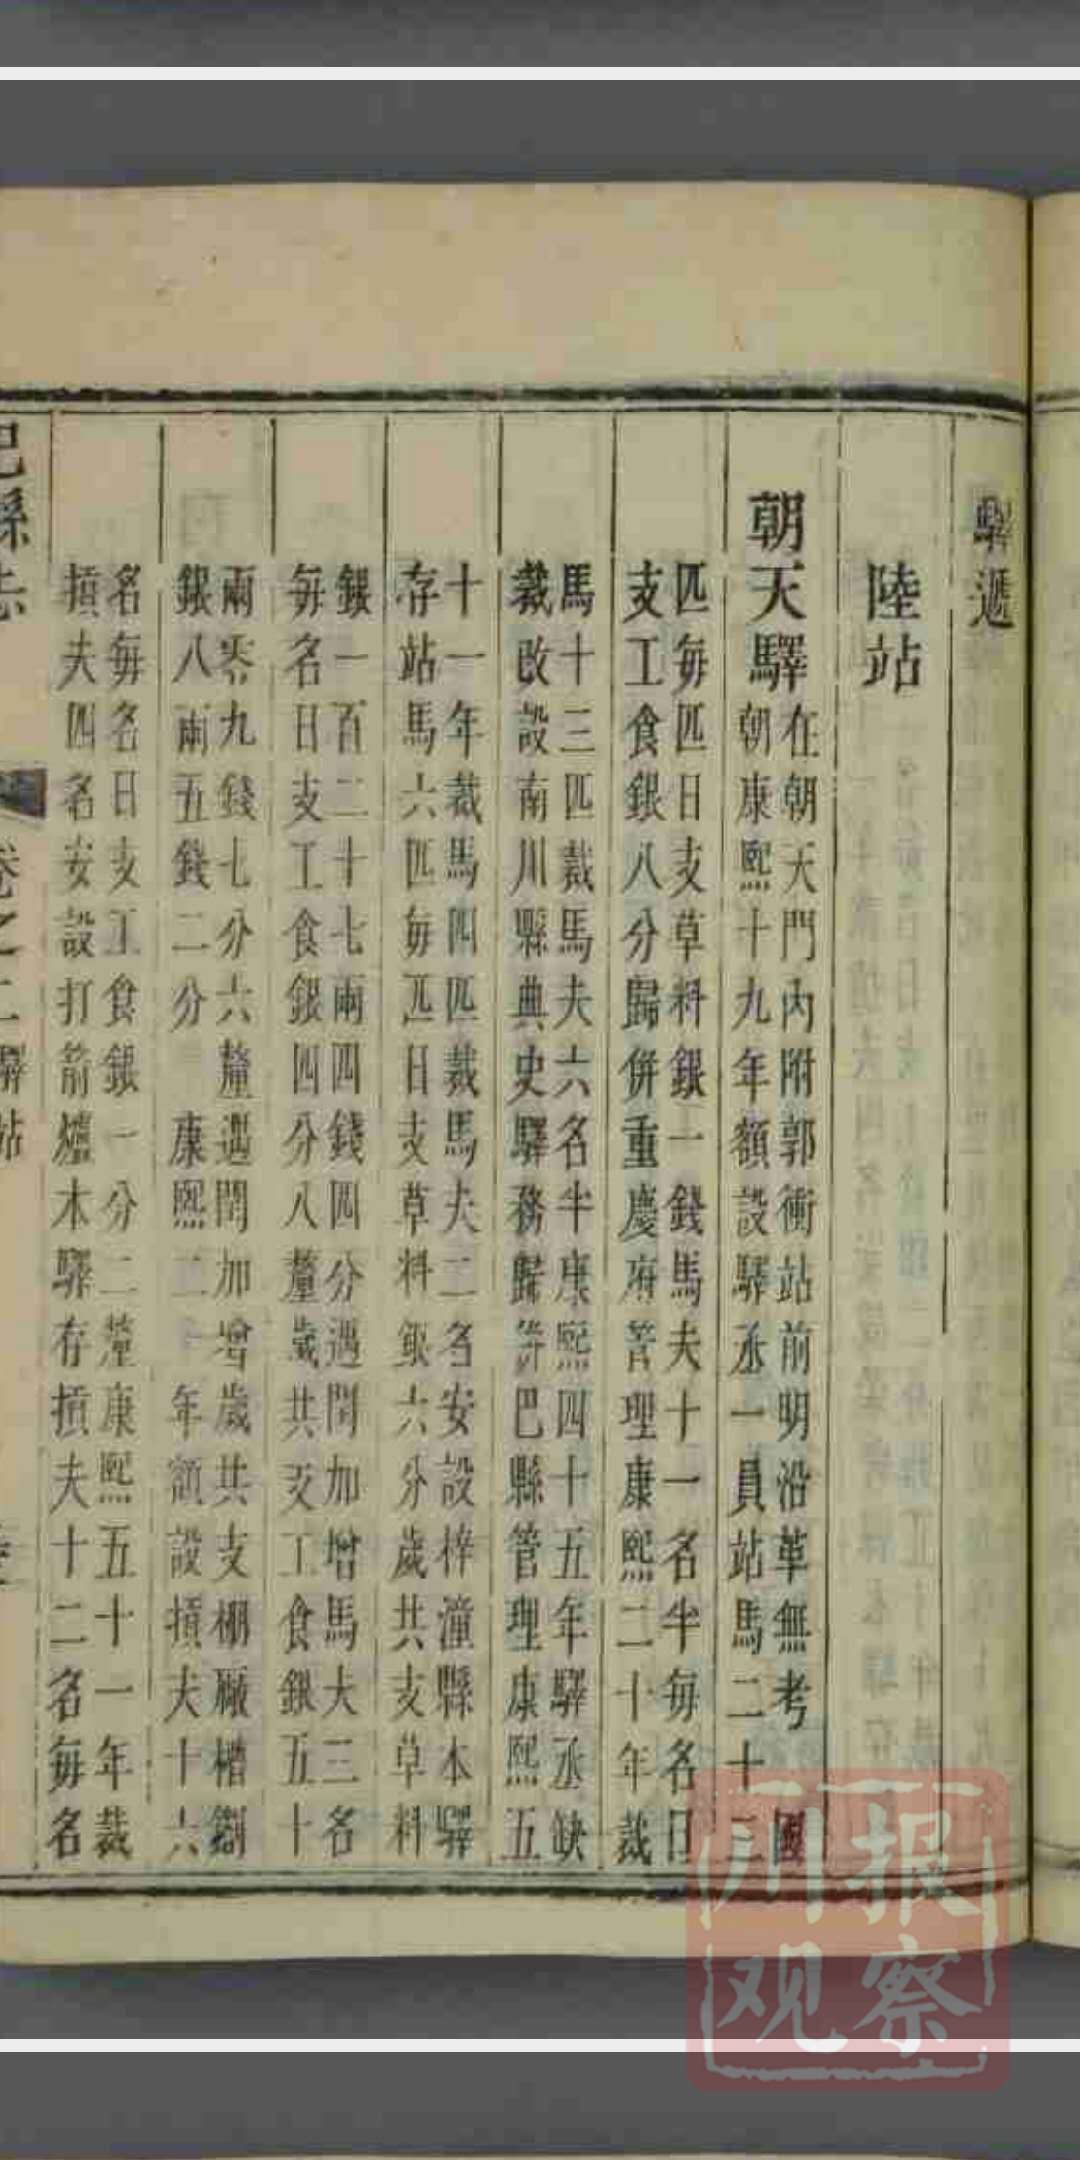 驛遞
陸站
朝天驛
在朝天門內附郭衝站前明沿革無考國
朝康熙十九年額設驛丞一員站馬二十三
匹每匹日支草料銀一錢馬夫十一名半每名日
支工食銀八分歸併重慶府管理康熙二十年裁
馬十三匹裁馬夫六名半康熙四十五年驛丞缺
裁改設南川縣典史驛務歸併巴縣管理康熙五
十一年裁馬四匹裁馬夫二名安設梓潼縣本驛
存站馬六匹每匹日支草料銀六分歲共支草料
銀一百二十七兩四錢四分遇閏加增馬夫三名
每名日支工食銀四分八釐歲共支工食銀五十
兩零九錢七分六釐遇閏加增歲共支棚廠槽鍘
銀八兩五錢二分康熙二十年額設摃夫十六
名每名日支工食銀一分二釐康熙五十一年裁
摃夫四名安設打箭爐木驛存摃夫十二名每名
巴縣志 卷之二驛站
川报
观察